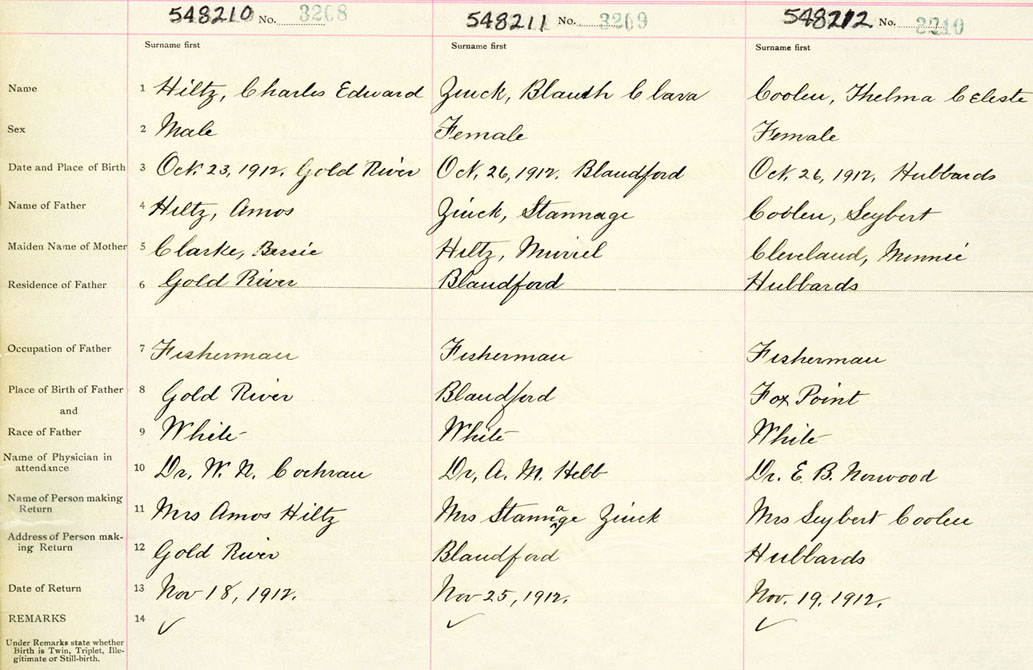 548210 No. 3208 548211 No. 3209 548212 No. 3210
Surname first Surname first Surname first
Name 1 Hiltz, Charles Edward Zinck, Blanch Clara Coolen, Thelma Celeste
Sex 2 Male Female Female
Date and Place of Birth 3 Oct. 23, 1912. Gold River Oct. 26, 1912. Blandford Oct. 26, 1912. Hubbards
Name of Father 4 Hiltz, Amos Zinck, Stannage Coolen, Seybert
Maiden Name of Mother 5 Clarke, Bessie Hiltz, Muriel Cleveland, Minnie
Residence of Father 6 Gold River Blandford Hubbards
Occupation of Father 7 Fisherman Fisherman Fisherman
Place of Birth of Father 8 Gold River Blandford Fox Point
and
Race of Father 9 White White White
Name of Physician in
attendance 10 Dr. W. N. Cochran Dr. A. M. Hebb Dr. E. B. Norwood
Name of Person making
Return 11 Mrs Amos Hiltz Mrs Stannage Zinck Mrs Seybert Coolen
Address of Person mak-
ing Return 12 Gold River Blandford Hubbards
Date of Return 13 Nov 18, 1912. Nov 25, 1912. Nov. 19. 1912.
REMARKS 14 ✓ ✓ ✓
Under Remarks state whether
Birth is Twin, Triplet, Ille-
gitimate or Still-birth.